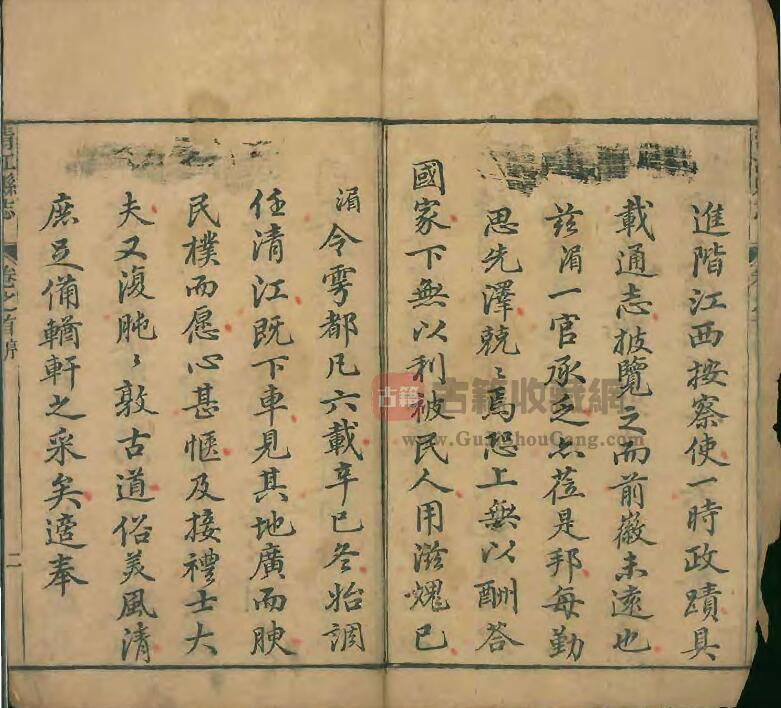 進階江西按察使一時政蹟具
載通志披覽之而前徽未遠也
兹湄一官承乏忝莅是邦每勤
思先澤兢〻焉恐上無以酬答
國家下無以利被民人用滋媿已
湄令雩都凡六載辛巳冬始調
任清江既下車見其地廣而腴
民樸而愿心甚愜及接禮士大
夫又復肫〻敦古道俗美風清
庶足備輶軒之采矣適奉
清江縣志
卷之首
序
二
古籍
古籍收藏網
www.GuJiShouCang.com